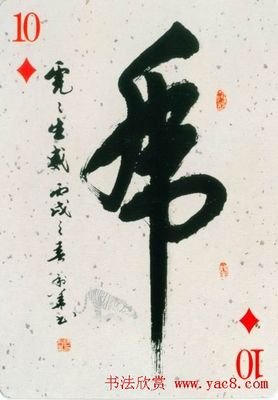 10
虎
虎虎生威 丙戌之春
10
书法欣赏
www.yac8.com